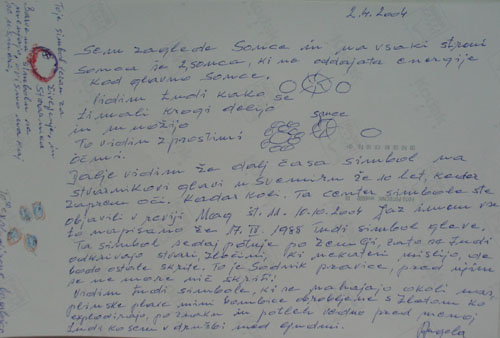 2.4.2004
Sem zagledala Sonce in na vsaki strani
Sonca še 2 sonca, ki ne oddajata energije
Kod glavno Sonce.
Vidim tudi kako se
ti mali krogi delijo
in množijo
To vidim z prostimi
očmi.
Sonce
Dalje vidim že dalj časa simbol na
stvarnikovi glavi in Svemirn že 10 let, kadar
zaprem oči. Kadar koli. Ta center simbola ste
objavili v reviji Mag št. 11. 10.10.2001 Jaz imam vse
to napisano že 17. IV. 1988 tudi simbol glave.
Ta simbol sedaj potuje po Zemlji, zato se tudi
odkrivajo stvari, zločini, ki nekateri mislijo, da
bodo ostale skrite. To je Sodnik pravice, pred njim
se ne more nič skriti.
Vidim tudi simbole, ki se nahajajo okoli nas
plinske plasti mimi bombice obrobljene s zlatom ko
explodirajo, po zraku in potleh vedno pred menoj
tudi ko sem v družbi med ljudmi.
Angela
To je simbol Sonca za
Življenje in
Stvarnika